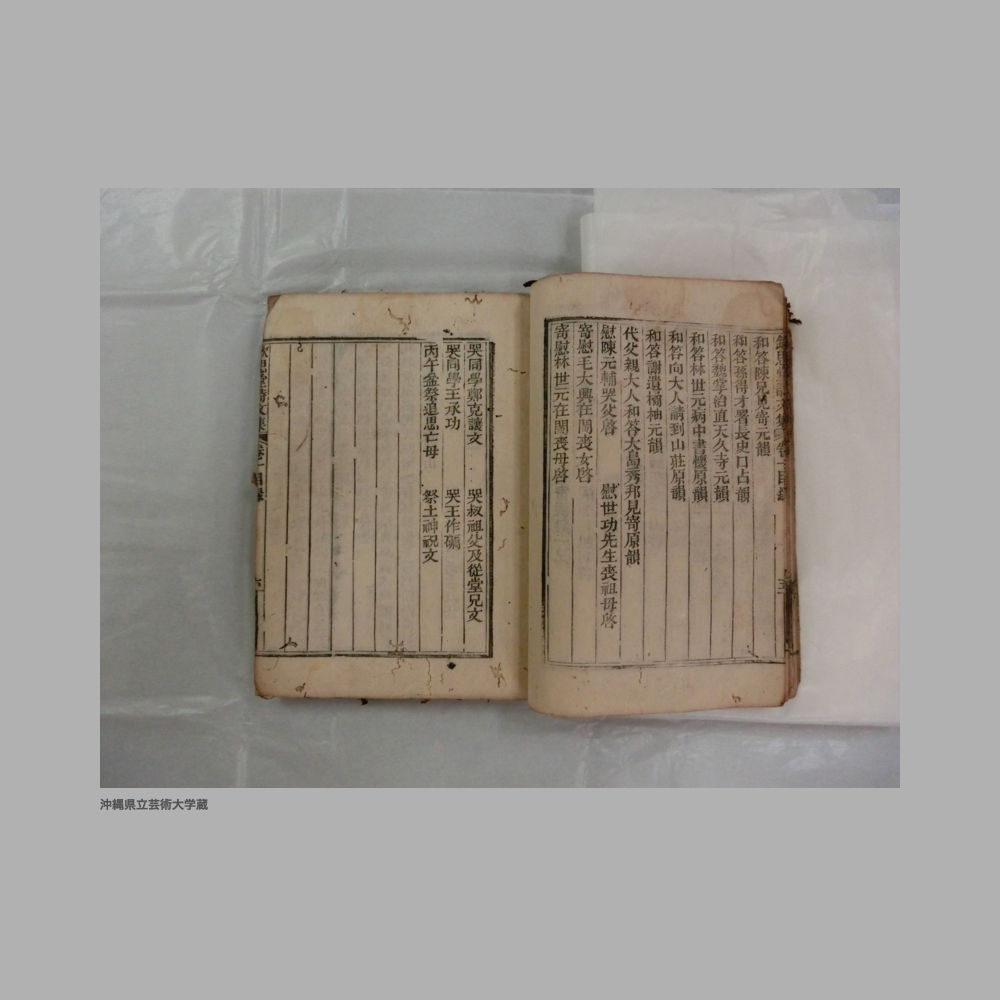 和答陳兄見寄元韻
和答孫得才署長史口占韻
和答魏掌治直天久寺元韻
和答林世元病中書懷原韻
和答向大人請到山莊原韻
和答謝遺橘柚元韻
代父親大人和答大島秀邦見寄原韻
慰陳元輔哭父啓 慰世功先生喪祖母啓
寄慰毛大興在閩喪女啓
寄慰林世元在閩喪母啓
哭同學鄭克讓文 哭叔祖父及從堂兄文
哭同學王承功 哭王作礪
丙午盆祭追思亡母 祭土神祝文
堂詩文集 卷一 目録 六
沖縄県立芸術大学蔵